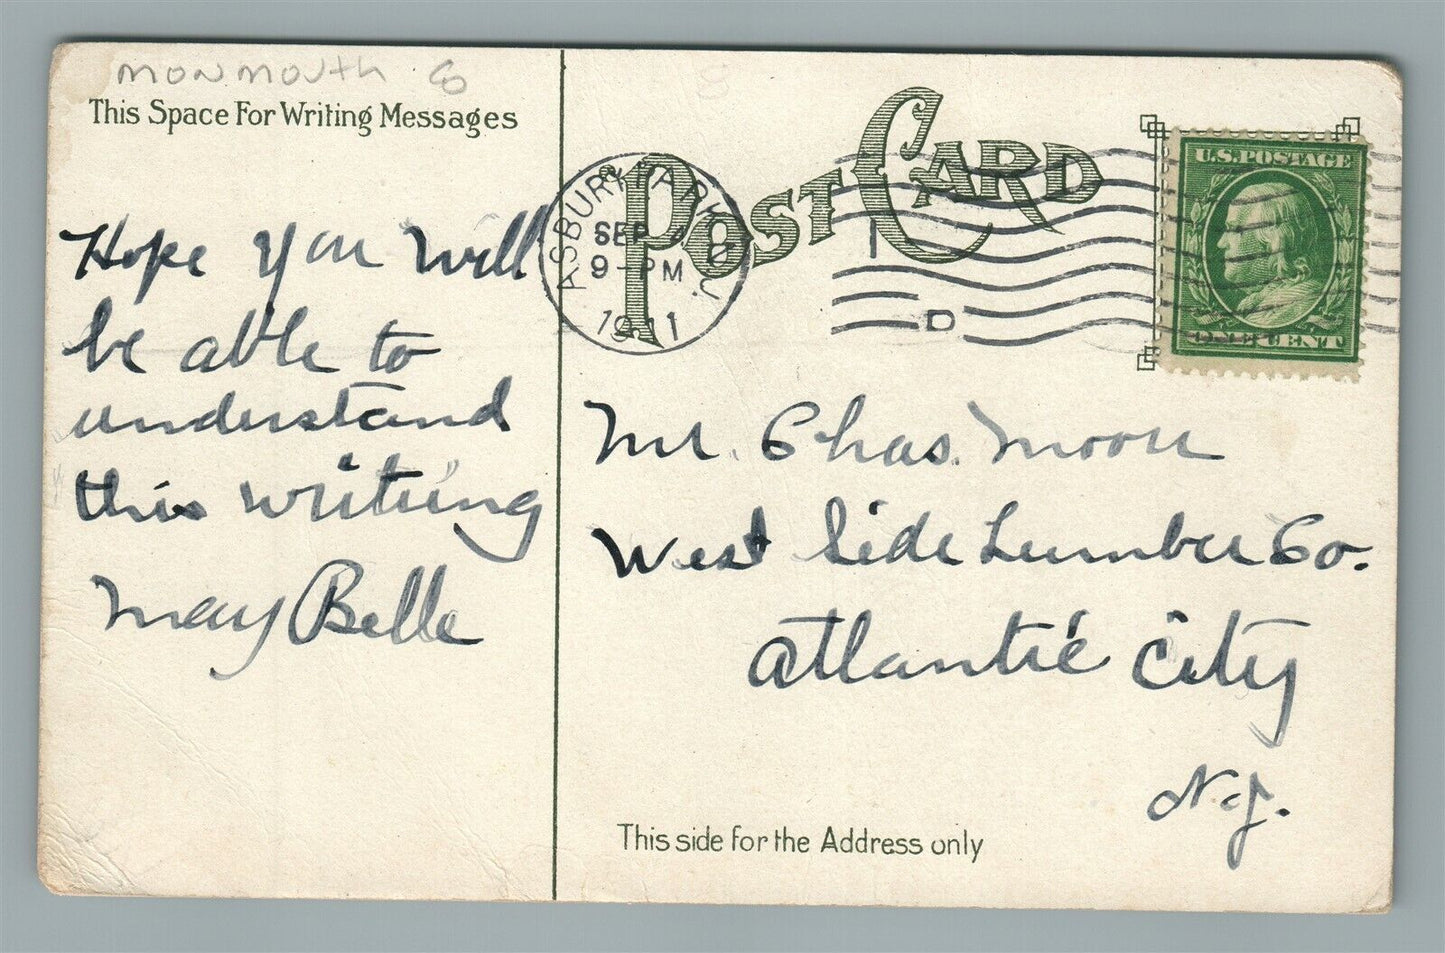 monmouth 8
This Space For Writing Messages
Hope you will
be able to
understand
this writing
May Belle
POST CARD
ASBURY PARK N.J.
SEP
9-PM
1911
D
U.S. POSTAGE
ONE CENT
Mr. Chas. Moore
West Side Lumber Co.
Atlantic City
N.J.
This side for the Address only